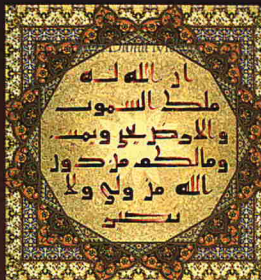 ان الله له
ملك السموت
والارض يحي ويميت
ومالكم من دون
الله من ولي ولا
نصير